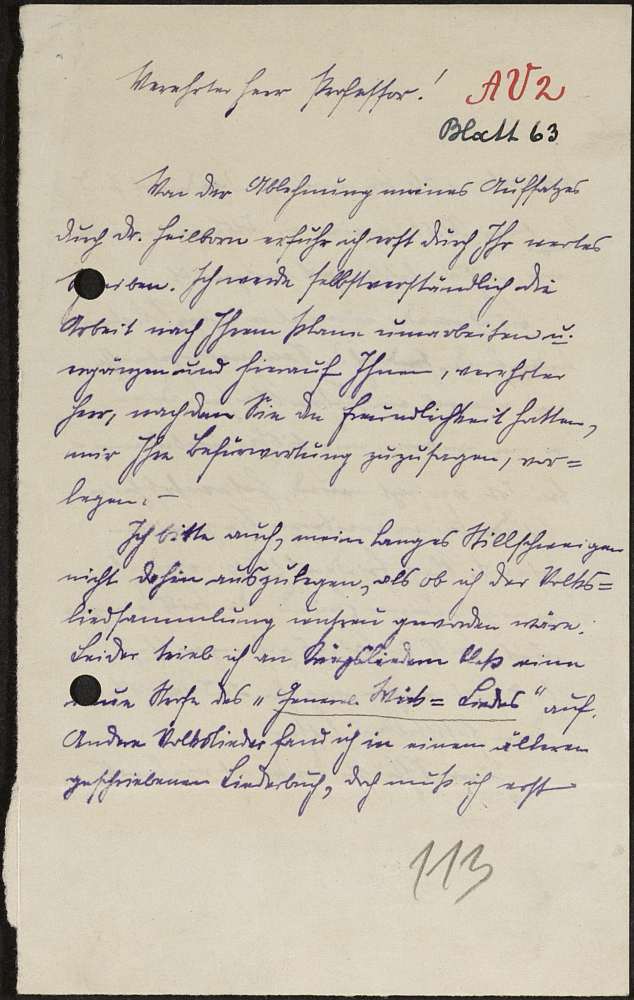 Verehrter Herr Professor!
AV2
Blatt 63
Von der Ablehnung meines Aufsatzes
durch Dr. Heilborn erfuhr ich erst durch Ihr wertes
Schreiben. Ich werde selbstverständlich die
Arbeit nach Ihrem Plane umarbeiten u.
ergänzen und hierauf Ihnen, verehrter
Herr, nachdem Sie die Freundlichkeit hatten,
mir Ihre Befürwortung zuzusagen, vor=
legen. –
Ich bitte auch, mein langes Stillschweigen
nicht dahin auszulegen, als ob ich der Volks=
liedsammlung untreu geworden wäre.
Leider trieb ich an Kriegsliedern bloß eine
neue Strofe des „General Liedes" auf.
Andere Volkslieder fand ich in einem älteren
geschriebenen Liederbuch, doch muß ich erst
113